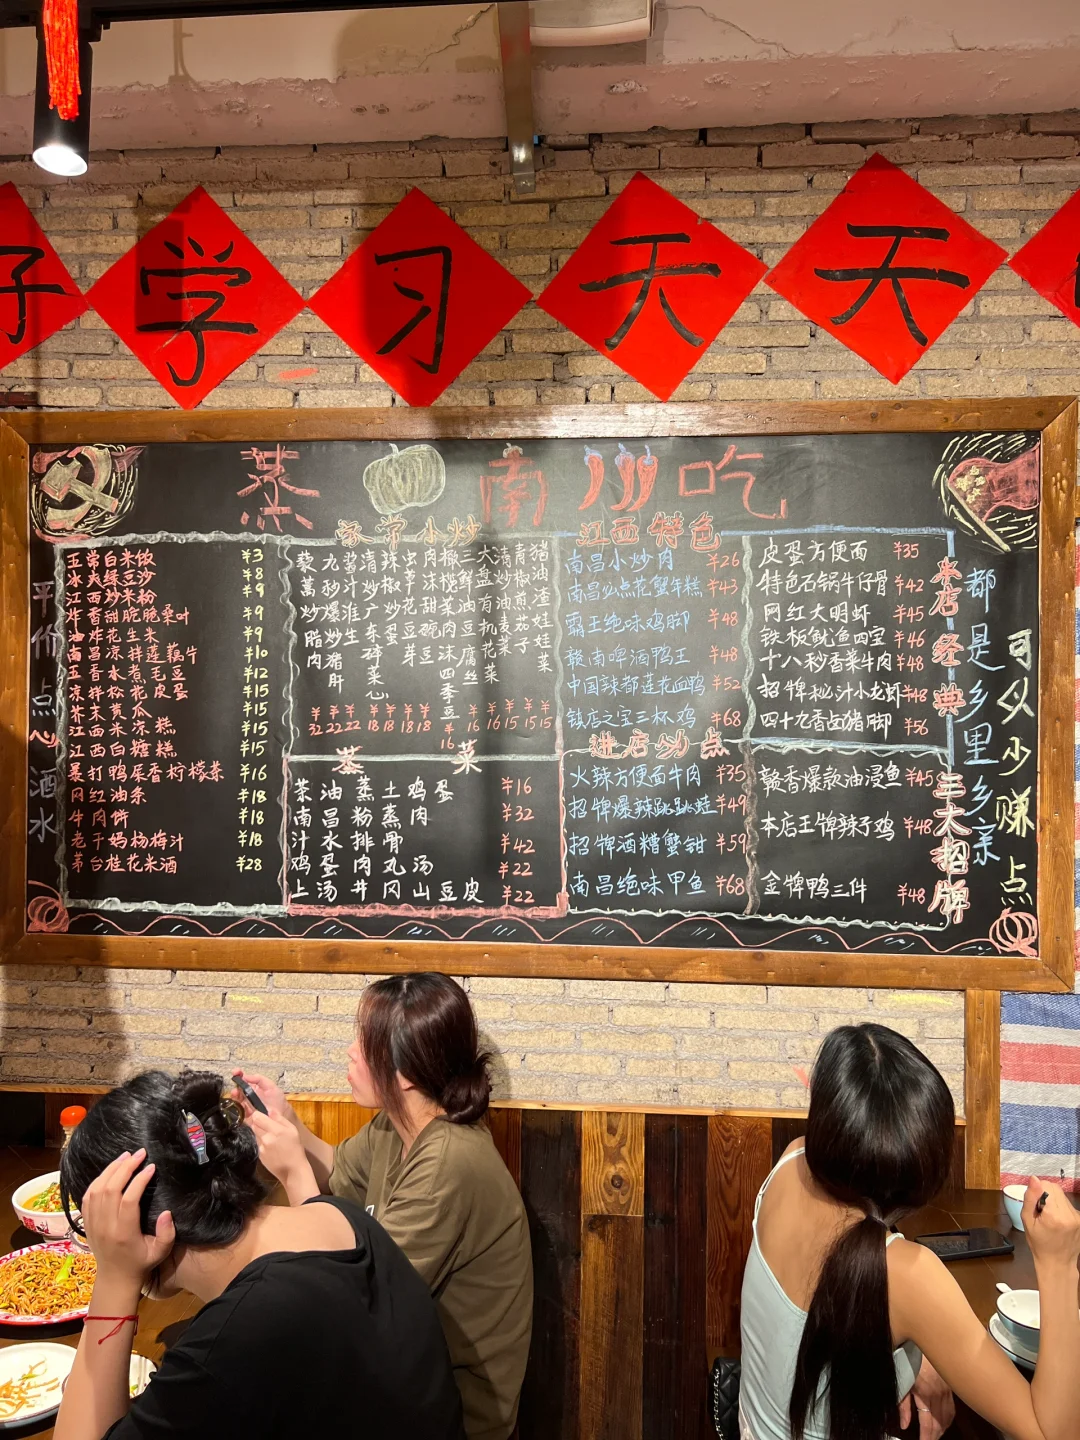 好学习天天
蒸南吃
平价点心酒水
五常白米饭 ¥3
冰爽绿豆沙 ¥8
江西炒米粉 ¥9
炸香甜脆脆桑叶 ¥9
油炸花生米 ¥9
南昌凉拌莲藕片 ¥10
五香水煮毛豆 ¥12
凉拌松花皮蛋 ¥15
芥末黄瓜 ¥15
江西米凉糕 ¥15
江西白糖糕 ¥15
暴打鸭屎香柠檬茶 ¥16
网红油条 ¥18
牛肉饼 ¥18
老干妈杨梅汁 ¥18
茅台桂花米酒 ¥28
家常小炒
藜蒿炒腊肉 ¥32
九秒爆炒猪肝 ¥22
酱汁淮生 ¥22
清炒广东菜心 ¥18
辣椒炒蛋 ¥18
虫草花芽 ¥18
肉沫甜豌豆 ¥18
橄榄菜肉沫四季豆 ¥16
三鲜油豆腐丝 ¥16
大盘有机花菜 ¥16
清炒油麦菜 ¥15
青椒煎茄子 ¥15
猪油渣娃娃菜 ¥15
蒸菜
茶油蒸土鸡蛋 ¥16
南昌粉蒸肉 ¥32
汁水排骨 ¥42
鸡蛋肉丸汤 ¥22
上汤井冈山豆皮 ¥22
江西特色
南昌小炒肉 ¥26
南昌必点花蟹年糕 ¥43
霸王绝味鸡脚 ¥48
赣南啤酒鸭王 ¥48
中国辣都莲花血鸭 ¥52
镇店之宝三杯鸡 ¥68
进店必点
火辣方便面牛肉 ¥35
招牌爆辣跳跳蛙 ¥49
招牌酒糟蟹钳 ¥59
南昌绝味甲鱼 ¥68
本店经典
皮蛋方便面 ¥35
特色石锅牛仔骨 ¥42
网红大明虾 ¥45
铁板鱿鱼四宝 ¥46
十八秒香菜牛肉 ¥48
招牌秘汁小龙虾 ¥48
四十九香卤猪脚 ¥56
三大招牌
赣香爆款油浸鱼 ¥45
本店王牌辣子鸡 ¥48
金牌鸭三件 ¥48
都是乡里乡亲
可以少赚点